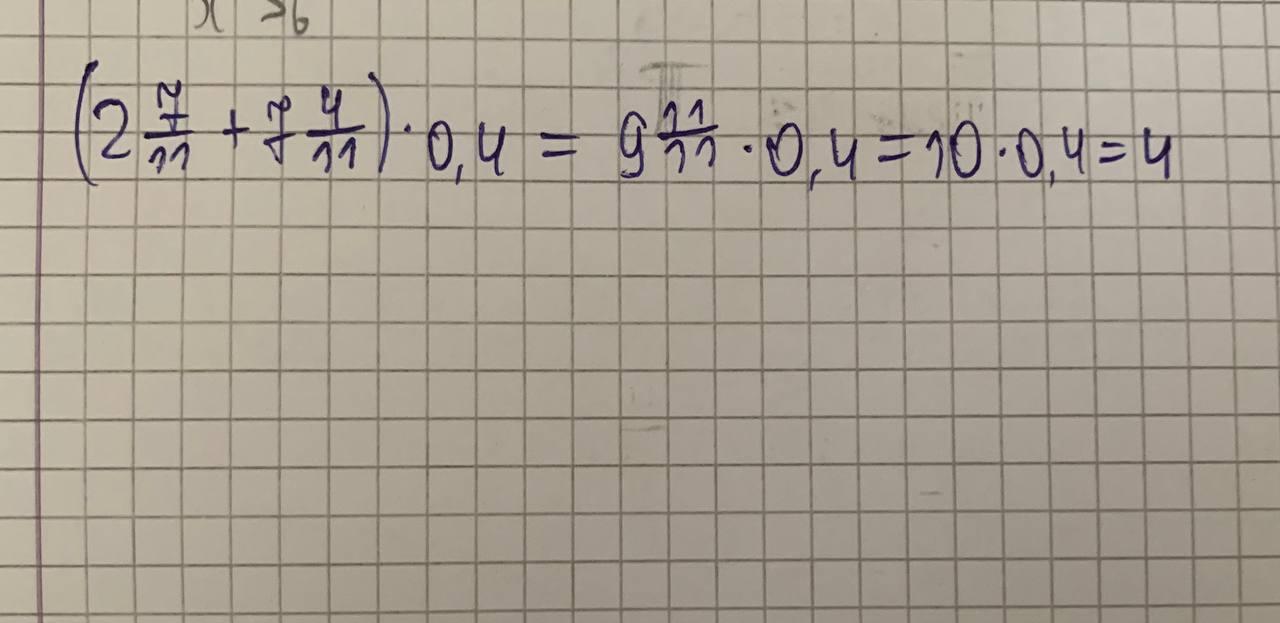 (2 7/11 + 7 4/11) · 0,4 = 9 11/11 · 0,4 = 10 · 0,4 = 4